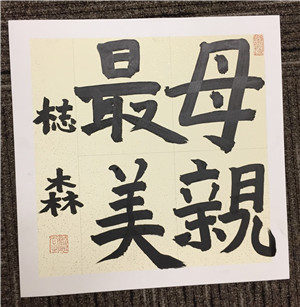 母親
最美
梽森